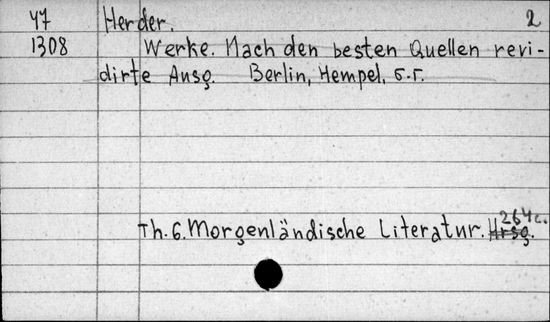 47 Herder. 2
1308 Werke. Nach den besten Quellen revi-
dirte Ausg. Berlin, Hempel, s.r.
Th. 6. Morgenländische Literatur. Hrsg. 264 c.